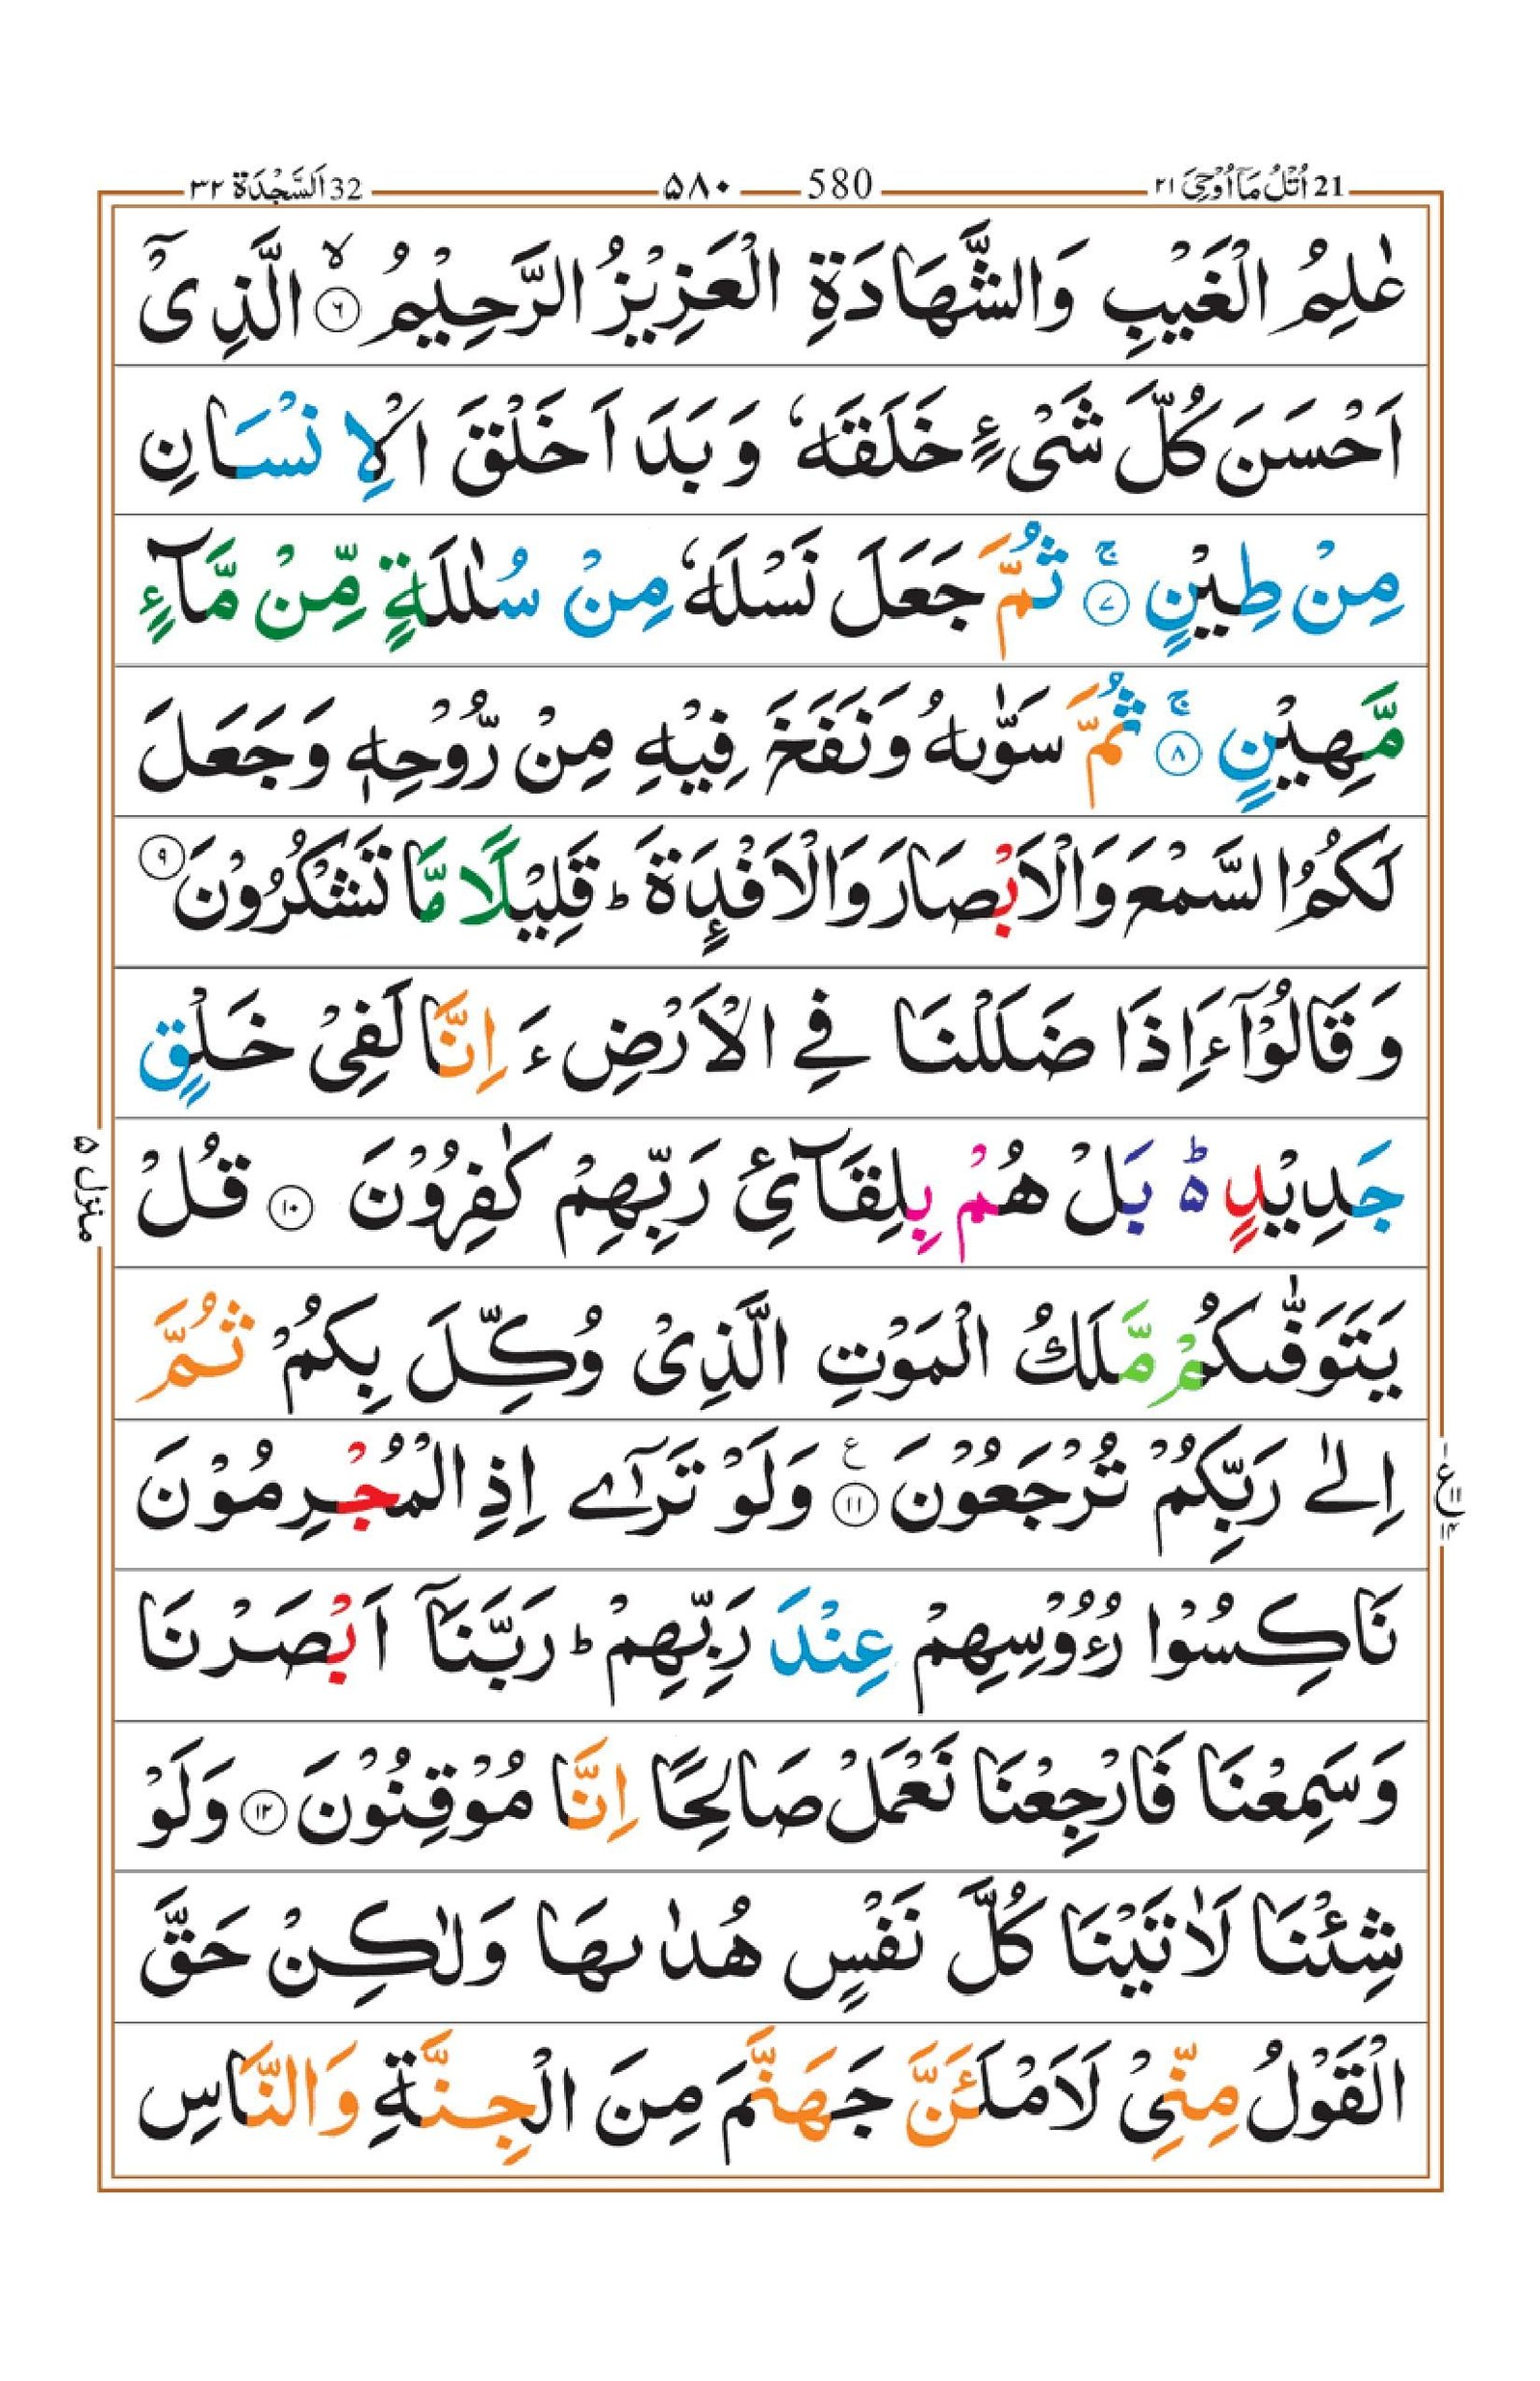 21 اُتْلُ مَاۤ اُوْحِیَ ۲۱
580 ۵۸۰
32 اَلسَّجْدَة ۳۲
عٰلِمُ الْغَيْبِ وَالشَّهَادَةِ الْعَزِيْزُ الرَّحِيْمُ ۙ‏ ﴿۶﴾ الَّذِىْۤ
اَحْسَنَ كُلَّ شَىْءٍ خَلَقَهٗ وَبَدَاَ خَلْقَ الْاِنْسَانِ
مِنْ طِيْنٍ ۚ‏ ﴿۷﴾ ثُمَّ جَعَلَ نَسْلَهٗ مِنْ سُلٰلَةٍ مِّنْ مَّآءٍ
مَّهِيْنٍ ۚ‏ ﴿۸﴾ ثُمَّ سَوّٰٮهُ وَنَفَخَ فِيْهِ مِنْ رُّوْحِهٖ وَجَعَلَ
لَكُمُ السَّمْعَ وَالْاَبْصَارَ وَالْاَفْـِٕدَةَ ؕ قَلِيْلًا مَّا تَشْكُرُوْنَ ﴿۹﴾
وَقَالُوْۤا ءَاِذَا ضَلَلْنَا فِى الْاَرْضِ ءَاِنَّا لَفِىْ خَلْقٍ
جَدِيْدٍ ۵ؕ بَلْ هُمْ بِلِقَآئِ رَبِّهِمْ كٰفِرُوْنَ ﴿۱۰﴾ قُلْ
يَتَوَفّٰٮكُمْ مَّلَكُ الْمَوْتِ الَّذِىْ وُكِّلَ بِكُمْ ثُمَّ
اِلٰى رَبِّكُمْ تُرْجَعُوْنَ ﴿۱۱﴾ ع وَلَوْ تَرٰٓى اِذِ الْمُجْرِمُوْنَ
ع ۱۱ ۱۴
نَاكِسُوْا رُءُوْسِهِمْ عِنْدَ رَبِّهِمْ ؕ رَبَّنَاۤ اَبْصَرْنَا
وَسَمِعْنَا فَارْجِعْنَا نَعْمَلْ صَالِحًا اِنَّا مُوْقِنُوْنَ ﴿۱۲﴾ وَلَوْ
شِئْنَا لَاٰتَيْنَا كُلَّ نَفْسٍ هُدٰٮهَا وَلٰكِنْ حَقَّ
الْقَوْلُ مِنِّىْ لَاَمْلَئَنَّ جَهَنَّمَ مِنَ الْجِنَّةِ وَالنَّاسِ
منزل ۵